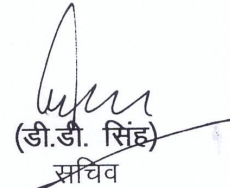 (डी.डी. सिंह)
सचिव